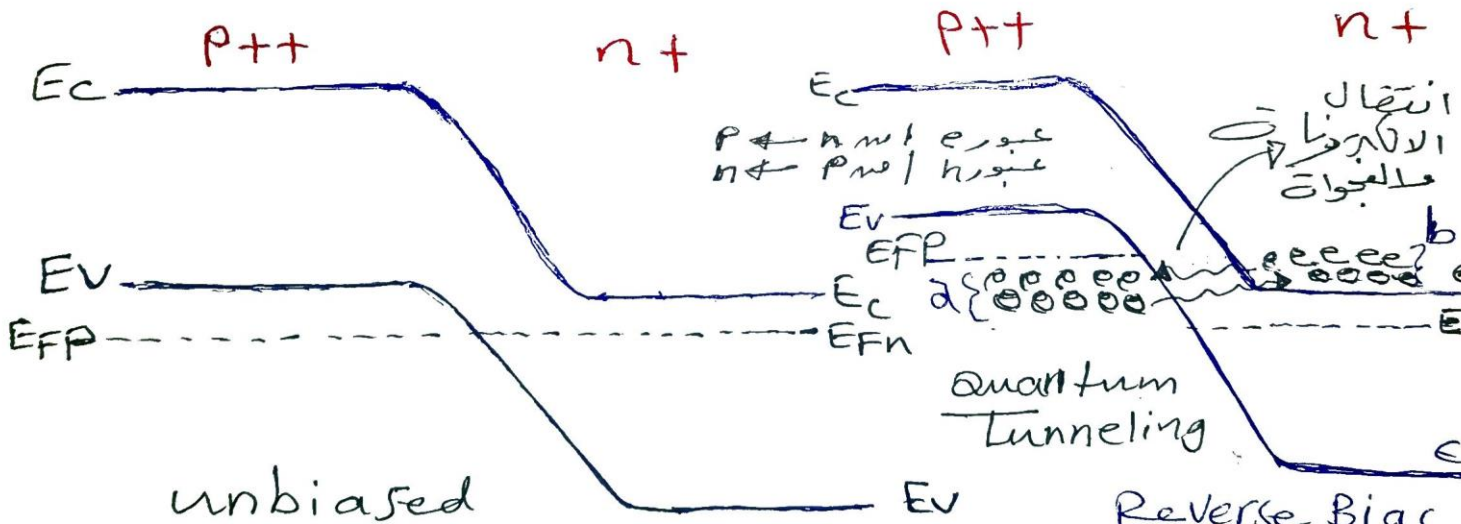 P++
n+
Ec
Ev
EFP
Ec
EFn
Ev
unbiased
P++
n+
Ec
عبور e من n ← P
عبور h من P ← n
انتقال
الالكترونات
والفجوات
Ev
EFP
a
e e e e e
b
e e e e e
E
Quantum
Tunneling
Reverse Bias